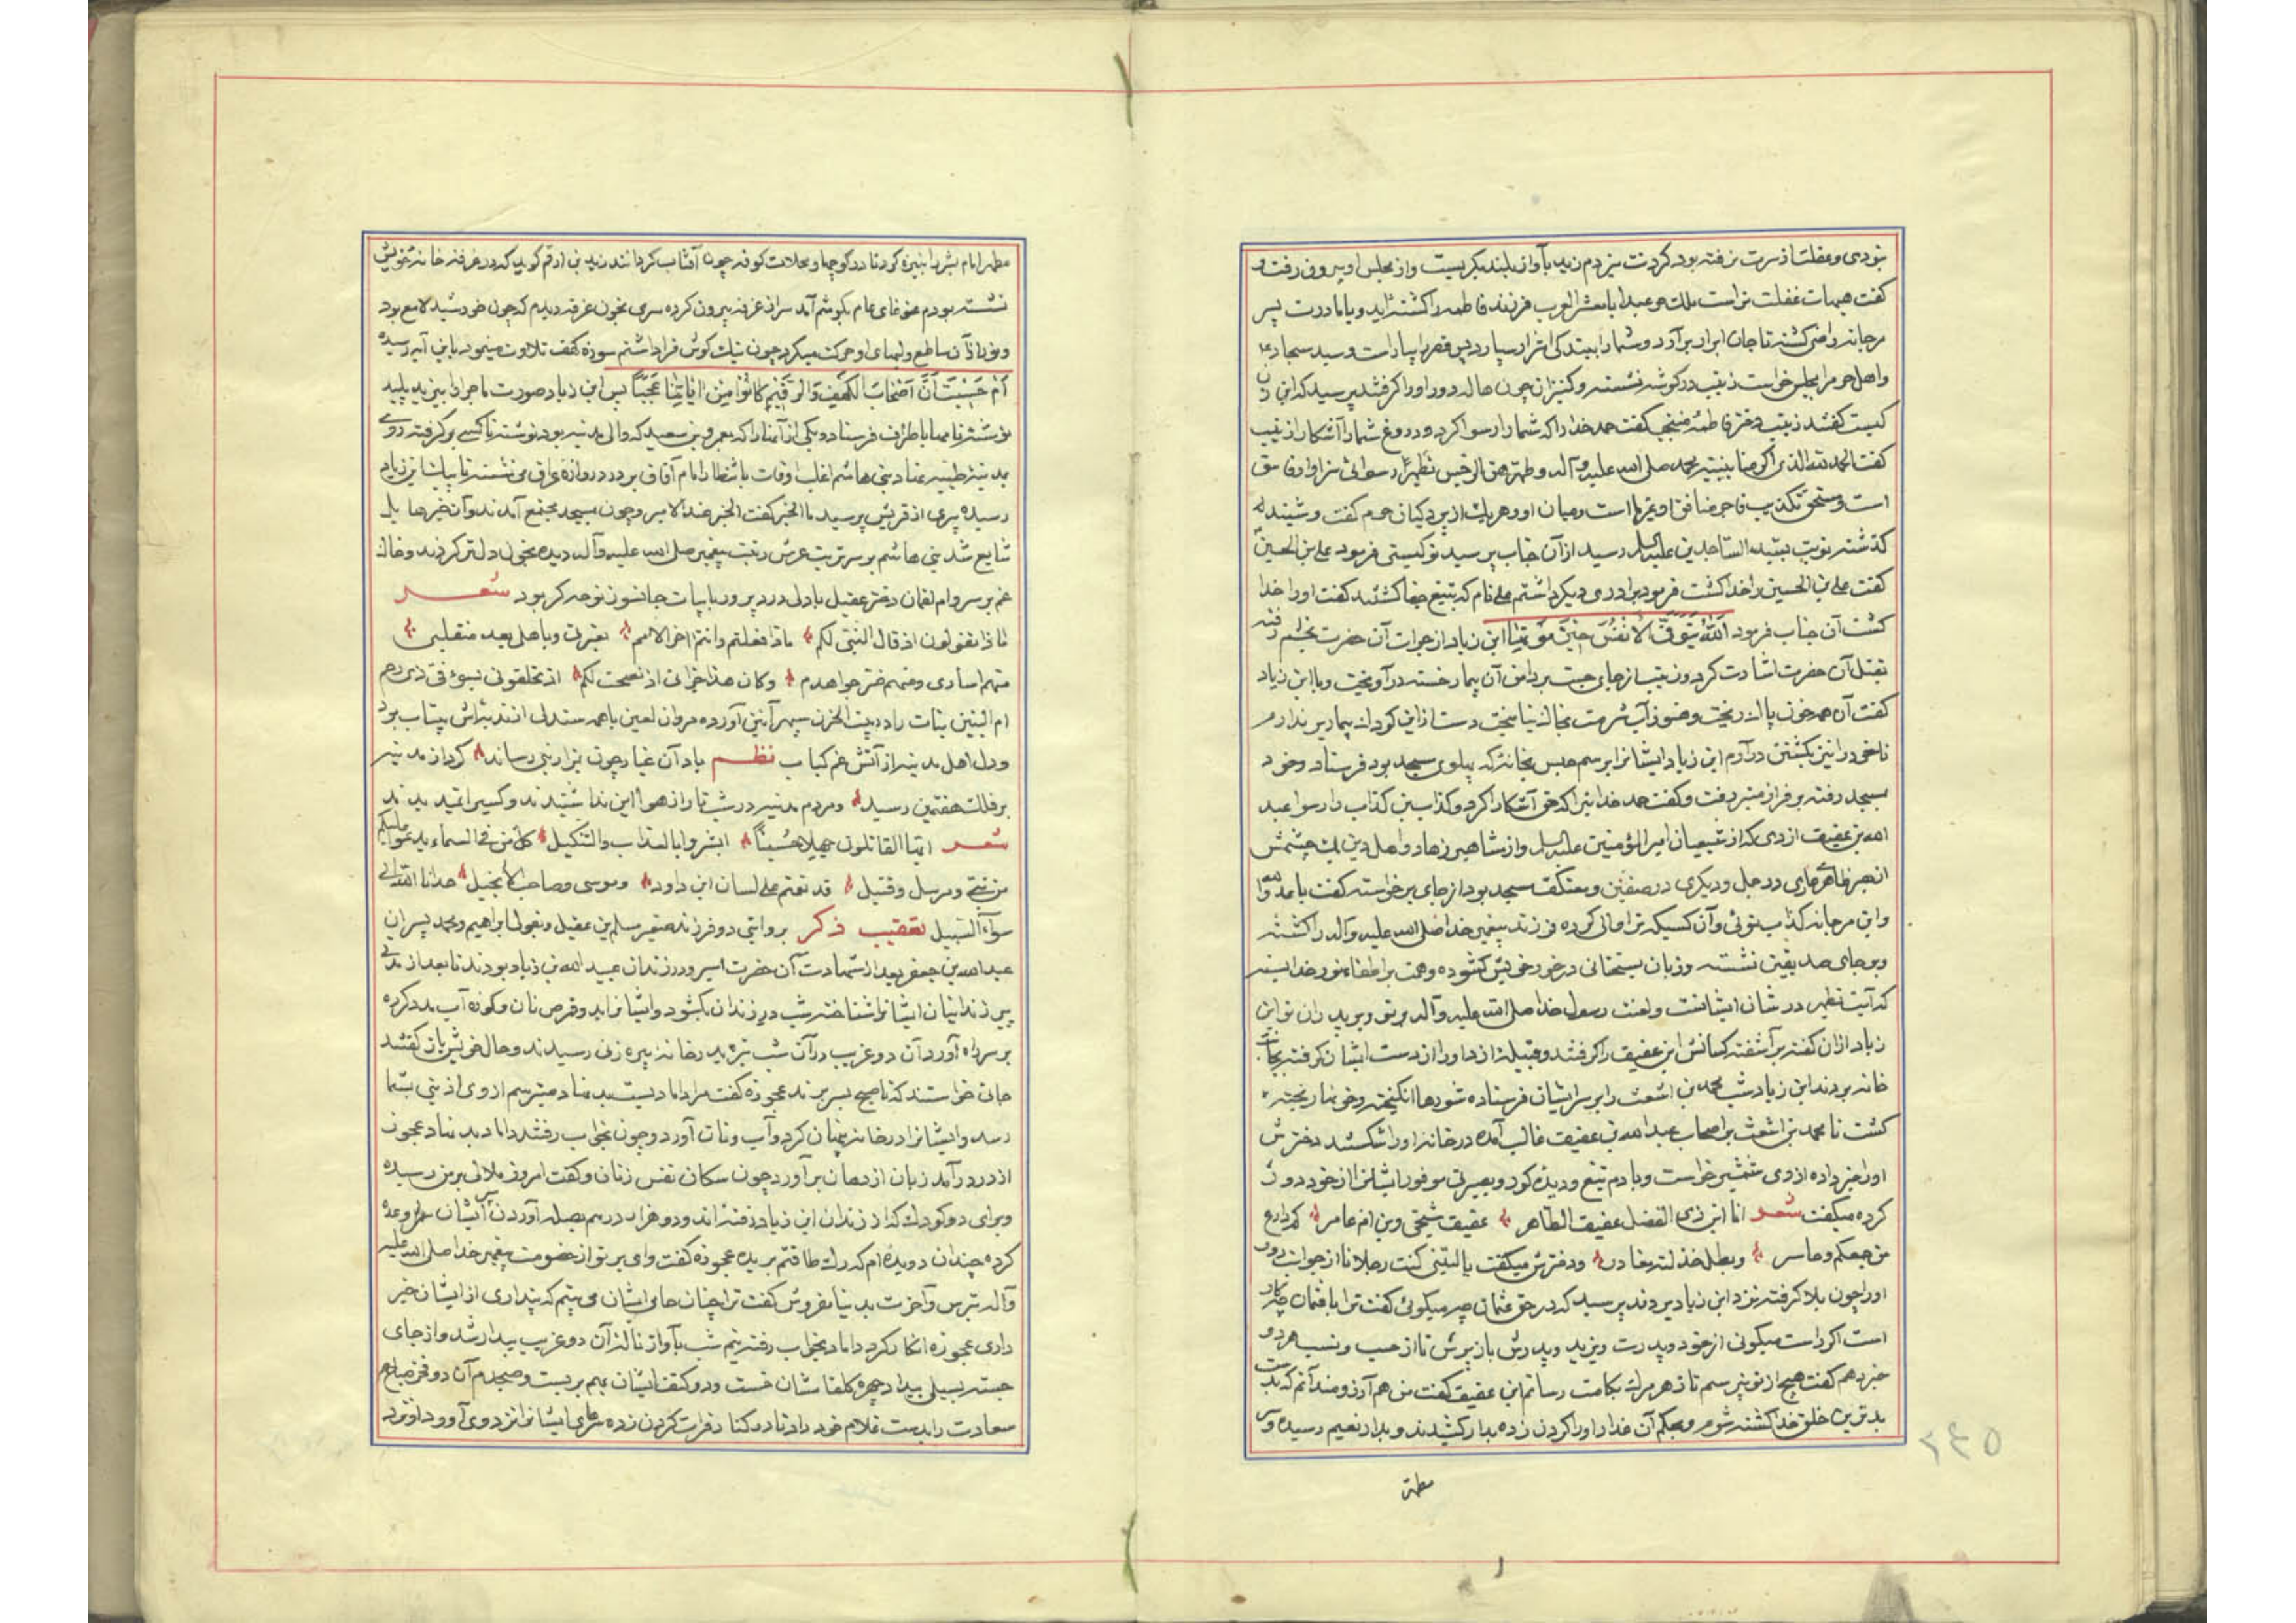 نبودی و عقلت از سرت نرفته بود کردنت میزدم زید بآواز بلند بکریست و از مجلس او بیرون رفت و
کفت هیهات غفلت تراست ملک حر عبدا یا معشر العرب فرزند فاطمه را کشته اید و یا مادرت پسر
مرجانه راضی کشته تا جان ابرار برآرد و شما را ببندکی اشرار سپارد پس قصر را بیاراست و سید سجاد ع
و اهل حرم را بمجلس خواست زینب در کوشه نشسته و کنیزان چون هاله دور او را کرفتند پرسید که این زن
کیست کفتند زینب دختر فاطمه کفت حمد خدا را که شما را رسوا کرد و دروغ شما را آشکار زینب
کفت الحمد لله الذی اکرمنا بنبیه محمد صلی الله علیه و آله و طهرنا من الرجس تطهیرا رسوائی سزاوار فاسق
است و مستحق تکذیب فاجر منافق او غیر ما است و میان او و هر یک از پردکیان حرم کفت و شنیدها
کذشته نوبت بسید الساجدین علیه السلام رسید از آن جناب پرسید تو کیستی فرمود علی بن الحسین
کفت علی بن الحسین را خدا کشت فرمود برادری دیکر داشتم علی نام که بتیغ جفا کشتند کفت او را خدا
کشت آن جناب فرمود اَللهُ یَتَوَفَّی الْاَنْفُسَ حینَ مَوْتِها ابن زیاد از جوات آن حضرت بخشم رفته
بقتل آن حضرت اشارت کرد و زینب از جای جست بر دامن آن بیمار خسته در آویخت و با ابن زیاد
کفت آن همه خون پاک ریخت و هنوز آب شرمت بخاک نیامیخت دست از این کودک بیمار بر ندارم
تا خود را نیز بکشتن درآرم ابن زیاد ایشانرا برسم حبس بخانه که پهلوی مسجد بود فرستاد و خود
بمسجد رفته بر فراز منبر رفت و کفت حمد خدائیرا که حق آشکارا کرد و کذاب بن کذاب را رسوا عبد
الله بن عفیف ازدی که از شیعیان امیر المؤمنین علیه السلام و از مشاهیر زهاد و اهل دین یک چشمش
در جمل و دیکری در صفین و معتکف مسجد بود از جای برخواسته کفت یا عدو الله
و ابن مرجانه کذاب توئی و آن کسیکه ترا والی کرده فرزند پیغمبر خدا صلی الله علیه و آله را کشته
و بر جای صدیقین نشسته و زبان بسخنانی در خور خویش کشوده و همت بر اطفاء نور خدا بسته
که آیت تطهیر در شان ایشانست و لعنت رسول خدا صلی الله علیه و آله بر تو و بر پدران تو ابن
زیاد از آن کفته برآشفته کسانش ابن عفیف را کرفتند و قبیله ازد او را از دست ایشان کرفته بجانب
خانه بردند ابن زیاد شب محمد بن اشعث را بر سر ایشان فرستاده شورها انکیخته و خونها ریخته
کشت تا محمد بن اشعث بر اصحاب عبد الله بن عفیف غالب آمده در خانه او را شکستند دخترش
او را خبر داده از وی شمشیر خواست و با دم تیغ و دیده کور و بصیرتی موفور ایشانرا از خود دور
کرده میکفت شعر انا ابن ذی الفضل عفیف الطاهر عفیف شیخی وبن ام عامر کم دارع
من جمعکم و حاسر وبطل خذلته مغادر ودخترش میکفت یا لیتنی کنت رجلا تا از جوانب دور
او را چون بلا کرفته نزد ابن زیاد بردند پرسید که در حق عثمان چه میکوئی کفت ترا با عثمان چه کار
است اکر راست میکوئی از خود و پدرت و یزید و پدرش باز پرس تا از حسب و نسب هر دو
خبر دهم کفت هیچ از تو نپرسم تا زهر مرک بکامت رسانم ابن عفیف کفت من هم آرزومند آنم که بدست
بدترین خلق خدا کشته شوم و بحکم آن غدار او را کردن زده بدار کشیدند و بدار نعیم رسیده و سر
مطهر
۲۴۵
مطهر امام بشر را بنیزه کرد تا در کوچها و محلات کوفه چون آفتاب کردانند زید بن ارقم کوید که در غرفه خانه خویش
نشسته بودم غوغای عام بکوشم آمد سر از غرفه بیرون کرده سری بخون غرقه دیدم که چون خورشید لامع بود
و نور از آن ساطع و لبهای او حرکت میکرد چون نیک کوش فرا داشتم سوره کهف تلاوت مینمود باین آیه رسیده
اَمْ حَسِبْتَ اَنَّ اَصْحابَ الْکَهْفِ وَالرَّقیمِ کانُوا مِنْ آیاتِنا عَجَباً پس ابن زیاد صورت ماجرا را بیزید پلید
نوشته نامها باطراف فرستاد و یکی از آنها را که بعمرو بن سعید که والی مدینه بود نوشته تا کسی بر کرفته روی
بمدینه طیبه نهاد بنی هاشم اغلب اوقات بانتظار امام آفاق بر در دروازه عراق می نشستند تا پیک ابن زیاد
رسیده پیری از قریش پرسید ما الخبر کفت الخبر عند الامیر و چون بمسجد مجتمع آمدند و آن خبرها یک
شایع شد بنی هاشم بر سر تربت عرش رتبت پیغمبر صلی الله علیه و آله دیده بخون دل تر کردند و خاک
غم بر سر و ام لقمان دختر عقیل با دلی درد پرور با بیات جانسوز نوحه کر بود شعر
ماذا تقولون اذ قال النبی لکم ماذا فعلتم وانتم آخر الامم بعترتی وباهلی بعد منقلبی
منهم اساری ومنهم ضرجوا بدم وکان هذا جزائی اذ نصحت لکم ان تخلفونی بسوء فی ذی رحم
ام البنین بنات را در بیت الحزن سپهر آئین آورده مروان لعین با همه سنکدلی از ندبه اش بیتاب بود
و دل اهل مدینه از آتش غم کباب نظم باد آن غبار چون بمزار نبی رساند کرد از مدینه
بر فلک هفتمین رسید و مردم مدینه در شب تار از هوا این ندا شنیدند و کسی را ندیدند
شعر ایها القاتلون جهلا حُسیناً ابشروا بالعذاب والتنکیل کل من فی السماء یدعو علیکم
من نبی ومرسل وقتیل قد لعنتم علی لسان ابن داود وموسی وصاحب الانجیل هدانا الله الی
سواء السبیل تعقیب ذکر بروایتی دو فرزند صغیر مسلم بن عقیل و بقولی ابراهیم و محمد پسران
عبد الله بن جعفر بعد از شهادت آن حضرت اسیر و در زندان عبید الله بن زیاد بودند تا بعد از مدتی
پیر زندانبان ایشانرا شناخته شب در زندان بکشود و ایشانرا بدو قرص نان و کوزه آب مدد کرده
بر سر راه آورد آن دو غریب در آن شب تیره بدر خانه پیره زنی رسیدند و حال خویش باز کفتند
جائی خواستند که تا صبح بسر برند عجوزه کفت مرا داما دیست بد نهاد میترسم از وی اذیتی بشما
رسد و ایشانرا در خانه پنهان کرد و آب و نان آورد و چون بخواب رفتند داماد بد نهاد عجوزه
از در درآمد زبان از دهان برآورد چون سکان نفس زنان و کفت امروز ملالی بر من رسیده
و برای دو کودک که از زندان ابن زیاد رفته اند و دو هزار درهم بصله آوردن سر ایشان وعده
کرده چندان دویده ام که رک طاقتم بریده عجوزه کفت وای بر تو از خصومت پیغمبر خدا صلی الله علیه
و آله بترس و آخرت بدنیا مفروش کفت ترا چنان حامی ایشان می بینم که پنداری از ایشان خبر
داری عجوزه انکار کرد داماد بخواب رفته نیم شب بآواز ناله آن دو غریب بیدار شد و از جای
جسته بسیلی بیداد چهره کلفامشان خست و دو کتف ایشان بهم بر بست و صبحدم آن دو
سعادت را بدست غلام خود داد تا در کنار فرات کردن زده سرهای ایشانرا نزد وی آورد او نزد